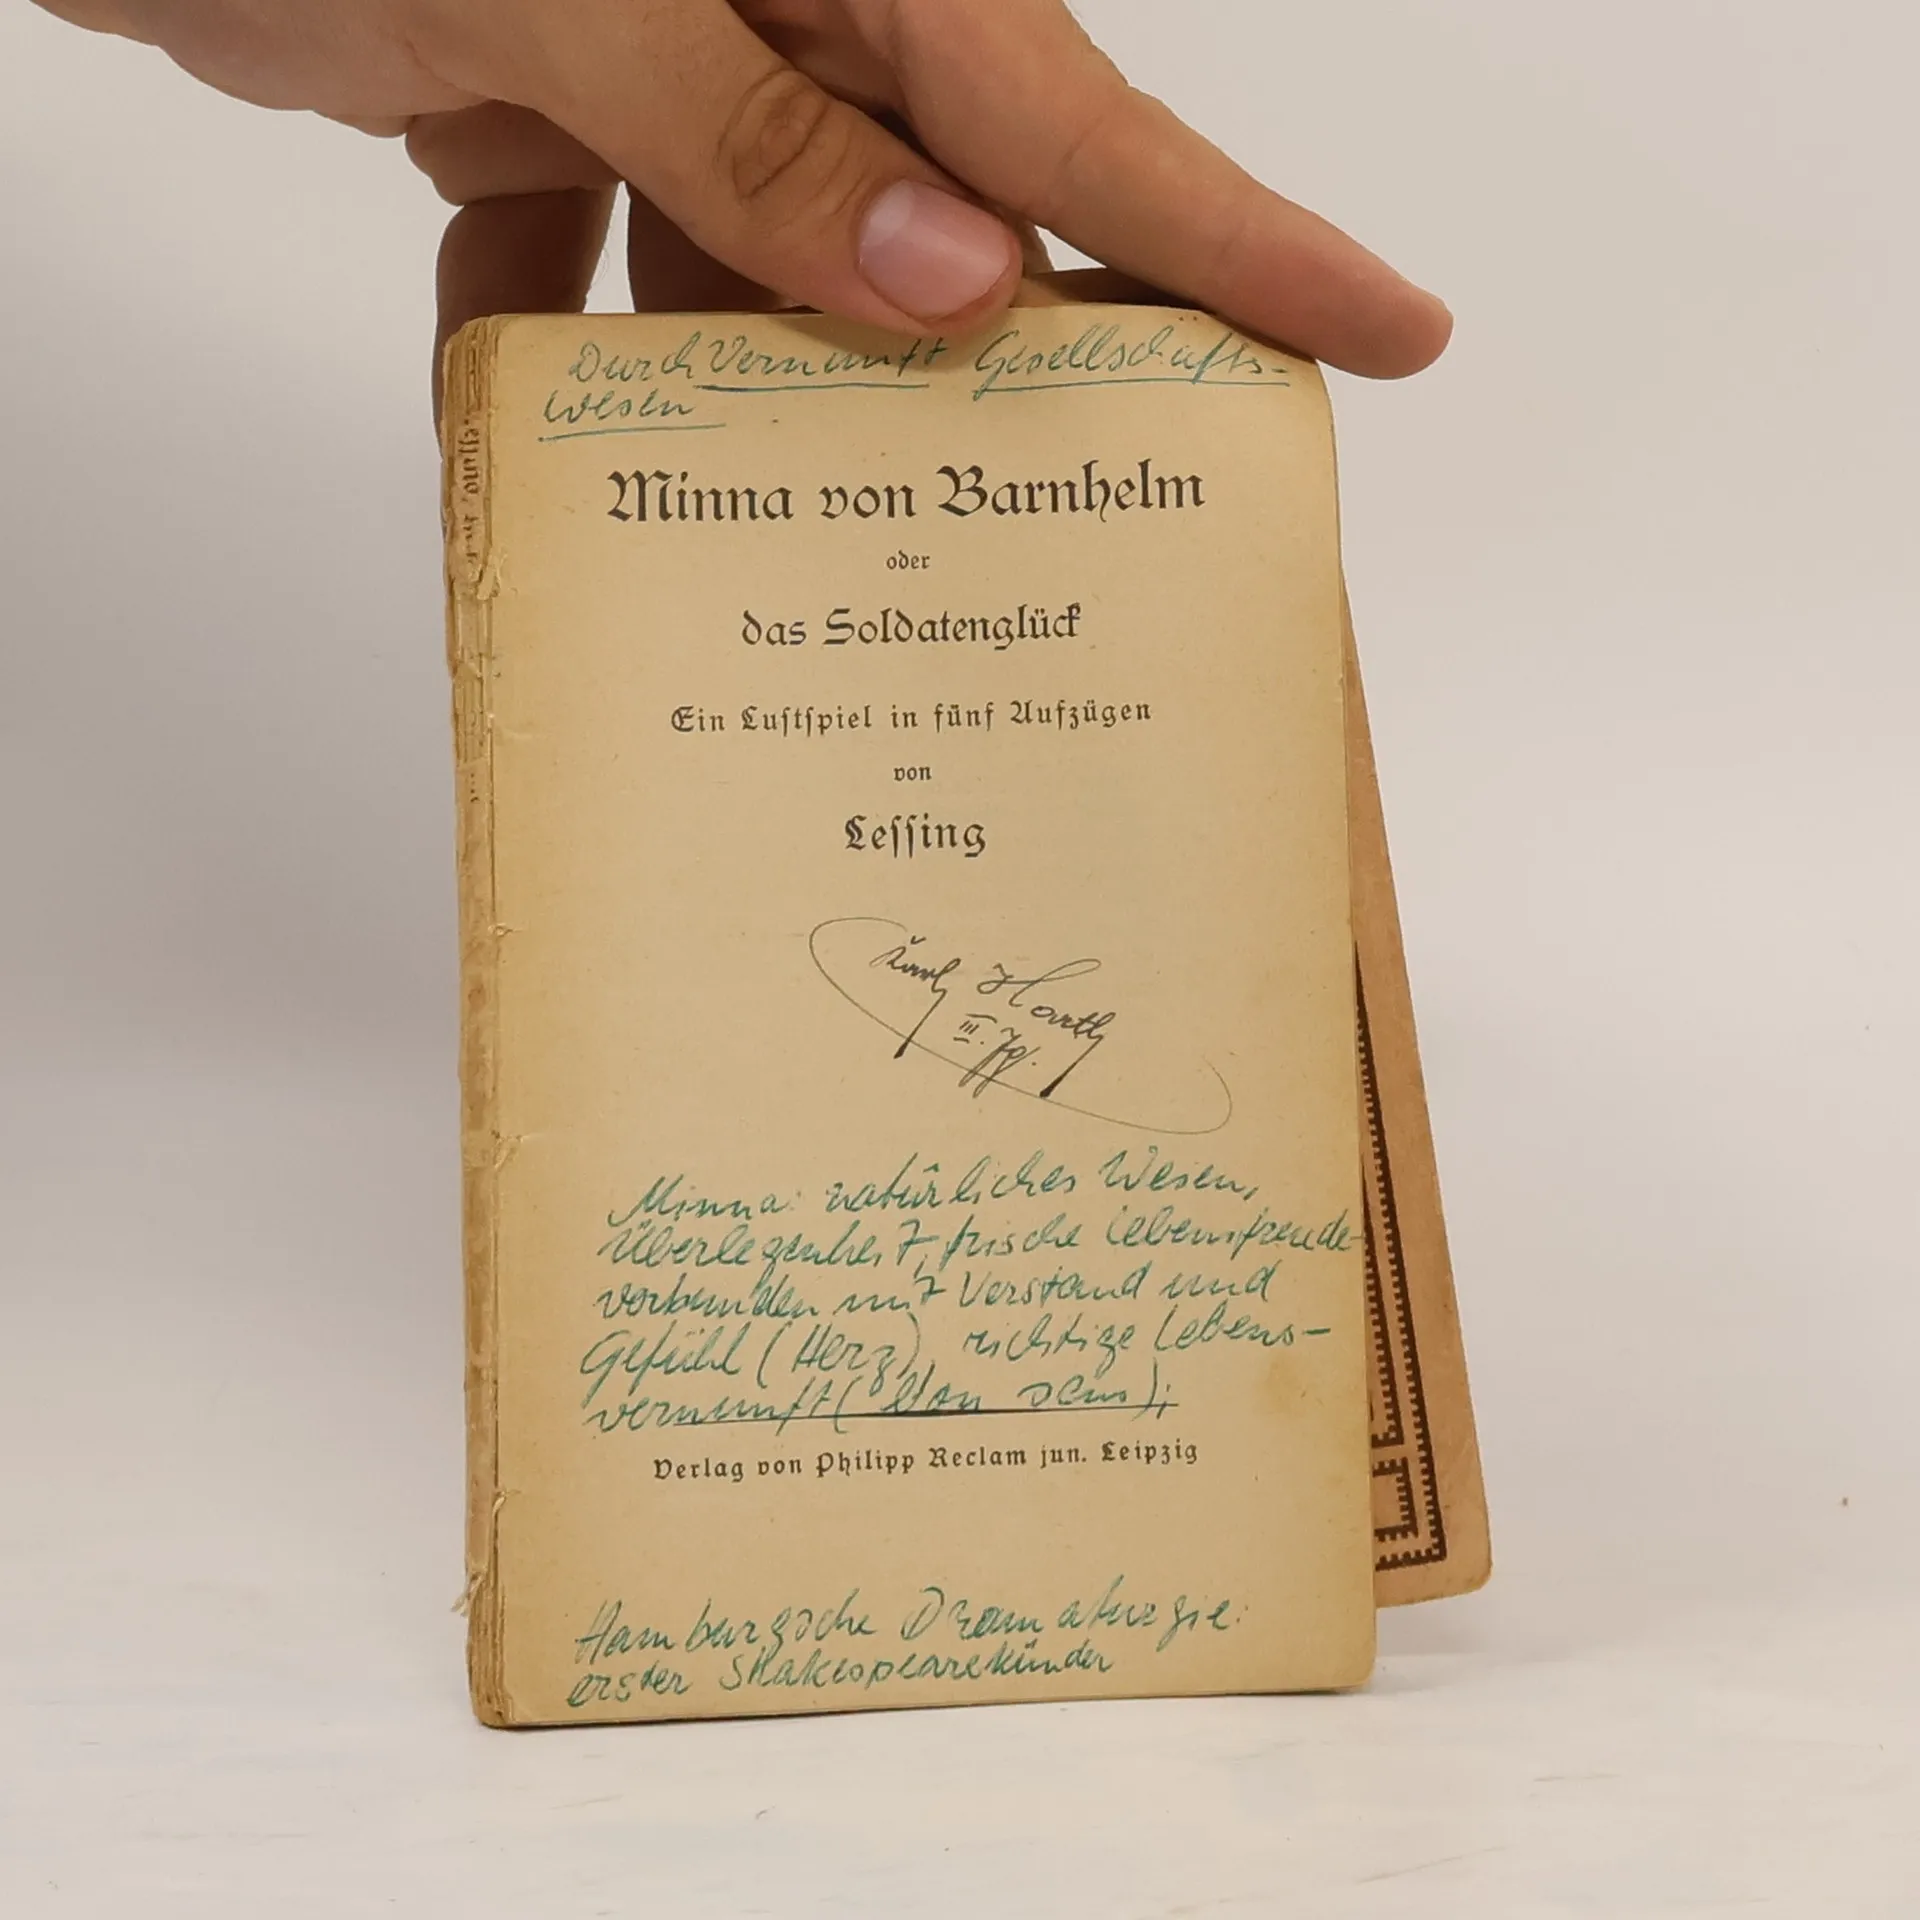 Durch Vernunft Gesellschafts-
wesen
Minna von Barnhelm
oder
das Soldatenglück
Ein Luſtſpiel in fünf Aufzügen
von
Leſſing
Karl
III.
Minna: natürliches Wesen,
Überlegenheit, frische Lebensfreude
verbunden mit Verstand und
Gefühl (Herz), richtige Lebens-
vernunft (bon sens);
Verlag von Philipp Reclam jun. Leipzig
Hamburgsche Dramaturgie:
erster Shakespearekünder